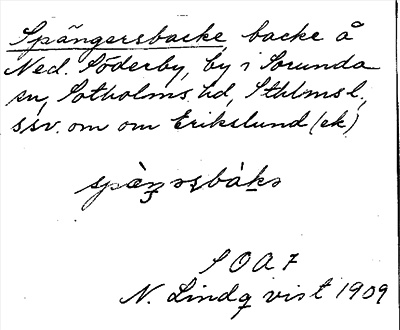 Spångersbacke, backe å
Ned. Söderby, by i Sorunda
sn, Sotholms hd, Sthlms l.,
ssv. om om Erikslund (ek)
SOA 7
N. Lindqvist 1909